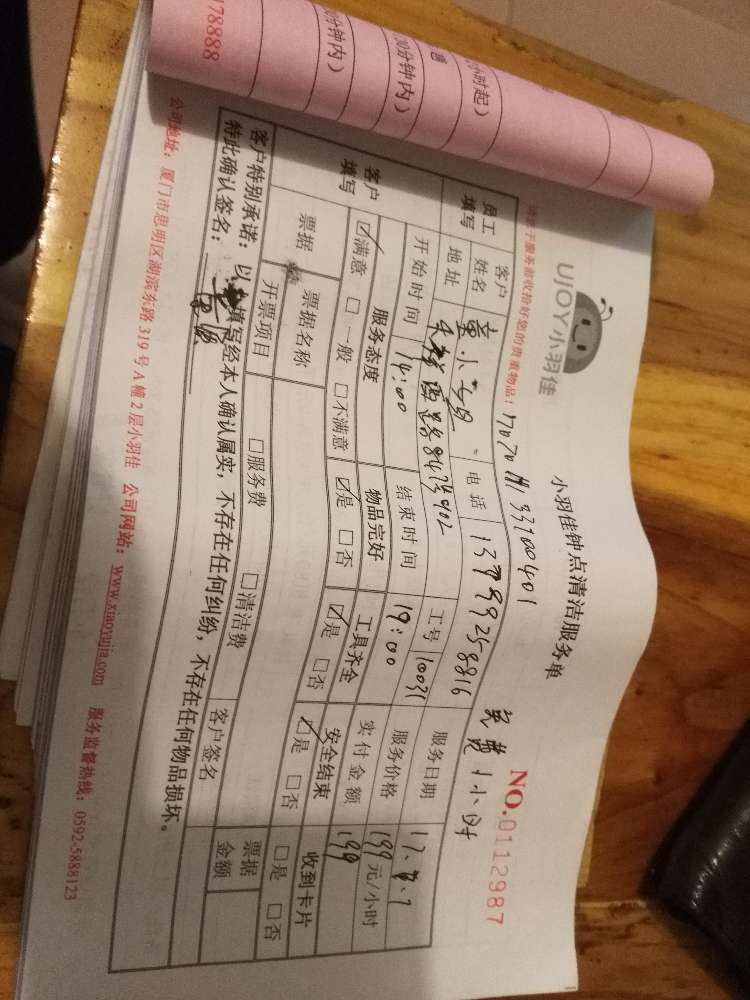 178888
30分钟内）
小时起）
分钟内）
UJOY小羽佳
小羽佳钟点清洁服务单
NO.0112987
服务前收拾好您的贵重物品：
员工填写
客户姓名
电话 13799258816
服务日期
地址
工号 10031
服务价格 199元/小时
客户填写
开始时间 14:00
结束时间 19:00
实付金额 199
服务态度
物品完好
工具齐全
安全结束
收到卡片
☑满意 □一般 □不满意
☑是 □否
☑是 □否
☑是 □否
□是 □否
票据
票据名称
票据金额
开票项目
□服务费
□清洁费
客户特别承诺：以 填写经本人确认属实，不存在任何纠纷，不存在任何物品损坏。
特此确认签名：
客户签名
公司地址：厦门市思明区湖滨东路319号A幢2层小羽佳 公司网站：www.xiaoyujia.com 服务监督热线：0592-5888123